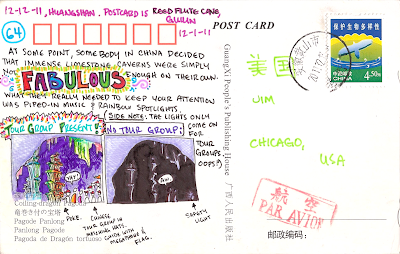 12-12-11, HUANGSHAN. POSTCARD IS REED FLUTE CAVE, GUILIN 12-1-11
64
AT SOME POINT, SOMEBODY IN CHINA DECIDED
THAT IMMENSE LIMESTONE CAVERNS WERE SIMPLY
NOT FABULOUS ENOUGH ON THEIR OWN.
WHAT THEY REALLY NEEDED TO KEEP YOUR ATTENTION
WAS PIPED-IN MUSIC & RAINBOW SPOTLIGHTS.
(SIDE NOTE: THE LIGHTS ONLY
COME ON
FOR
TOUR
GROUPS.
OOPS!)
TOUR GROUP PRESENT:
NO TOUR GROUP:
Coiling-dragon Pagoda
竜巻き付の宝塔
Pagode Panlong
Panlong Pagode
Pagoda de Dragón tortuoso
CHINESE
TOUR GROUP IN
MATCHING HATS.
GUIDE WITH
MEGAPHONE &
FLAG.
SAFETY
LIGHT
POST CARD
GuangXi People's Publishing House 广西人民出版社
保护生物多样性
中国邮政
CHINA
4.50元
美国
JIM
CHICAGO,
USA
航空
PAR AVION
邮政编码: